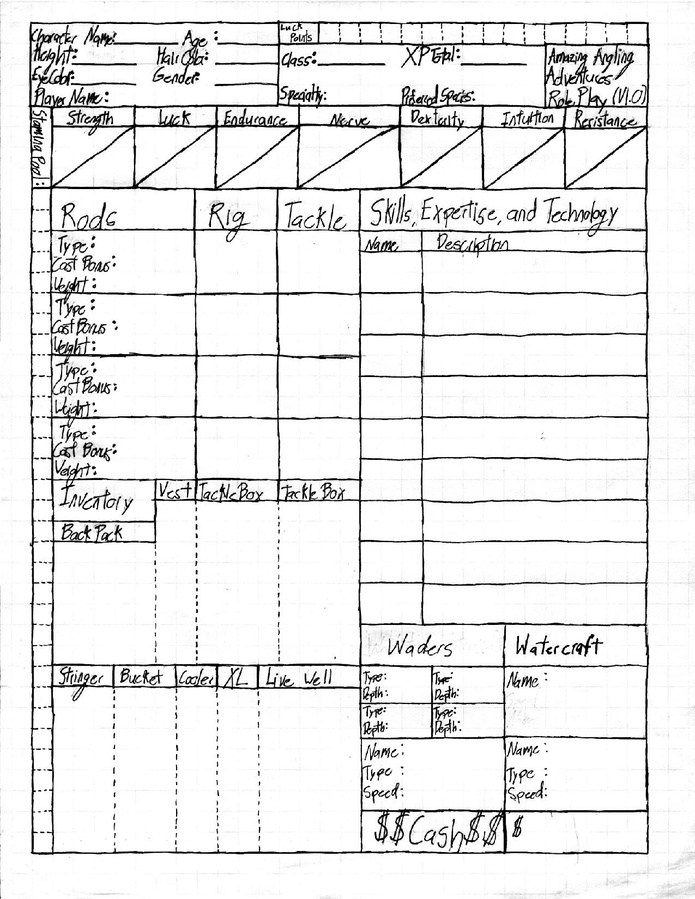 Character Name: Age:
Height: Hair Color:
Eye Color: Gender:
Player Name:
Luck Points
Class: XP Total:
Specialty: Preferred Species:
Amazing Angling
Adventures
Role Play (V1.0)
Stamina Pool:
Strength Luck Endurance Nerve Dexterity Intuition Resistance
Rods Rig Tackle Skills, Expertise, and Technology
Name Description
Type:
Cast Bonus:
Weight:
Type:
Cast Bonus:
Weight:
Type:
Cast Bonus:
Weight:
Type:
Cast Bonus:
Weight:
Inventory Vest Tackle Box Tackle Box
Back Pack
Stringer Bucket Cooler XL Live Well
Waders Watercraft
Type: Type: Name:
Depth: Depth:
Type: Type:
Depth: Depth:
Name: Name:
Type: Type:
Speed: Speed:
$$Cash$$ $